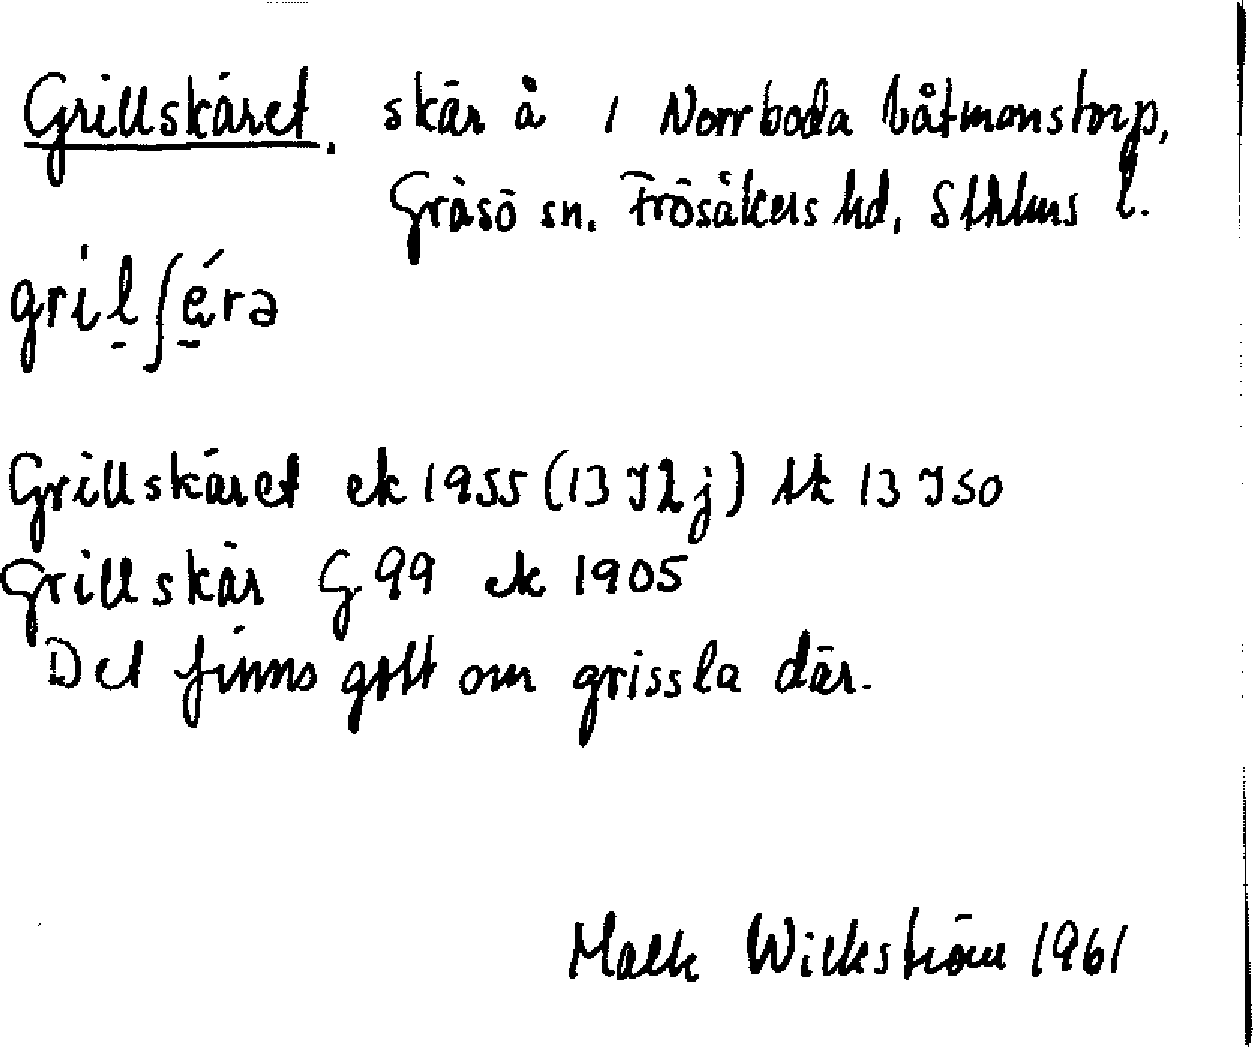 Grillskäret. skär å 1 Norrboda båtmanstorp,
Gräsö sn. Frösåkers hd, Sthlms l.
gril̠ʃä̠́rə
Grillskäret ek 1955 (13 I 2 j) tk 13 I SO
Grillskär G 99 ek 1905
Det finns gott om grissla där.
Wikström 1961